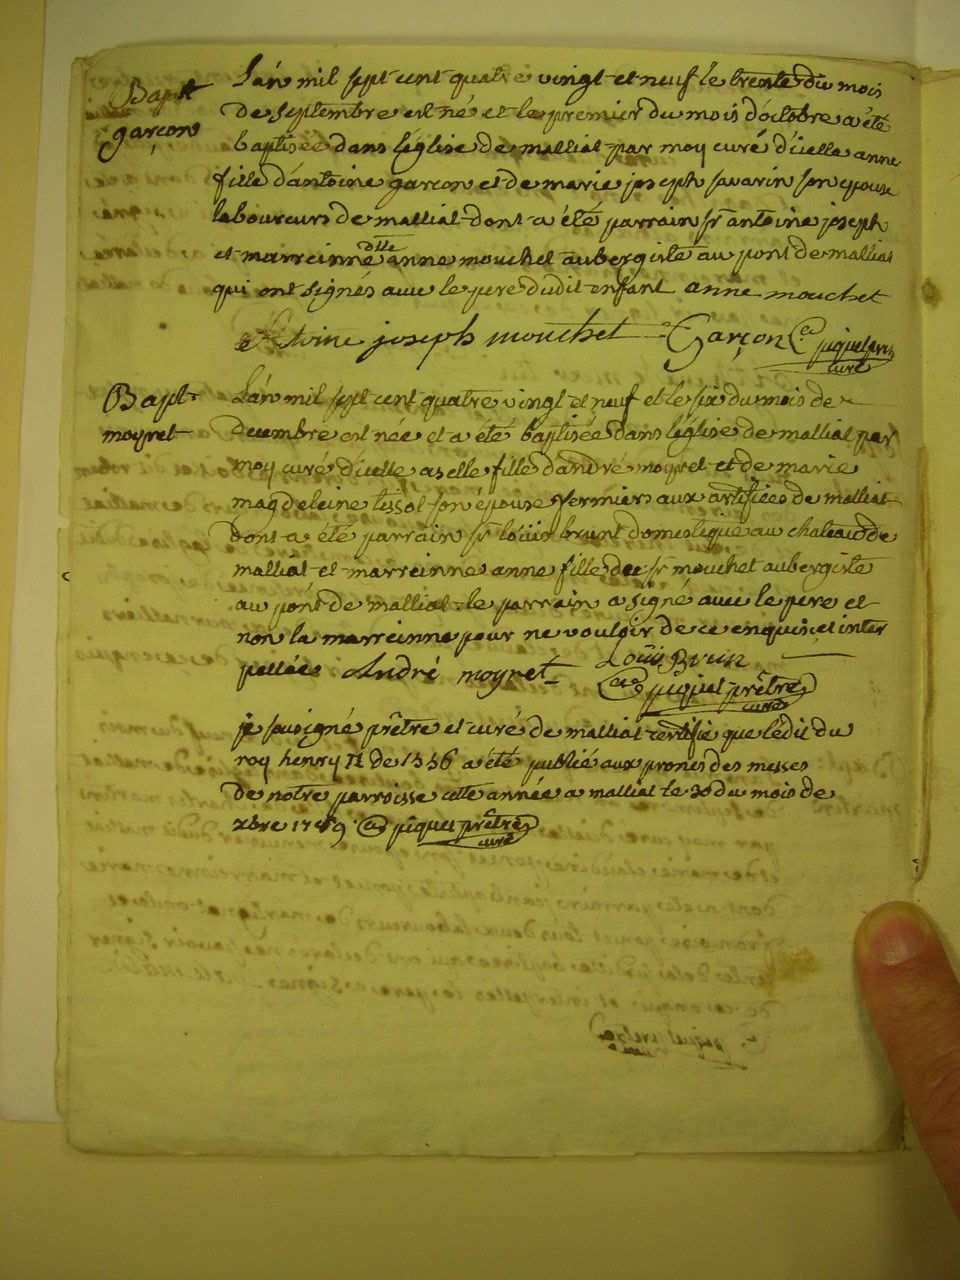 Bapt L'an mil sept cent quatre vingt et neuf le trente du mois
garçon de septembre est né et le premier du mois d'octobre a été
baptisée dans l'église de malliat par moy curé d'icelle anne
fille d'antoine garçon et de marie joseph savarin son epouse
laboureurs de malliat dont a été parrain sr antoine joseph
et marreinne dlle anne mouchet aubergiste au pont de malliat
qui ont signés avec le pere dudit enfant anne mouchet
Antoine joseph mouchet Garçon piquet prtre
curé
Bapt L'an mil sept cent quatre vingt et neuf et le six du mois de
moyret decembre est née et a été baptisée dans l'église de malliat par
moy curé d'icelle fille d'andré moyret et de marie
magdeleine tissot son épouse fermiers aux artifices de malliat
dont a été parrain sr louis brunt domestique au chateau de
malliat et marreinne anne fille de sr mouchet aubergiste
au pont de malliat. le parrain a signé avec le pere et
non la marreinne pour ne vouloir de ce enquise et inter
pellée André moyret Louis Brun
piquet prêtre
curé
je sousigné prêtre et curé de malliat certifie que l'edit du
roy henry II de 1556 a été publié aux prones des messes
de notre parroisse cette année a malliat le 30 du mois de
xbre 1789 piquet prêtre
curé